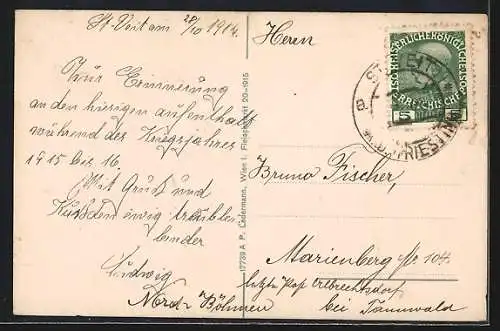 St. Veit am 28/10 1914.
Zur Erinnerung
an den hiesigen Aufenthalt
während des Kriegsjahres
1915 bis 16
Mit Gruß und
Küssen ewig
Ludwig
17739 A P. Ledermann, Wien I. Fleischmarkt 20—1915
Herrn
Bruno Fischer,
Marienberg No 104
letzte Post Albrechtsdorf
bei Tannwald
Nord-Böhmen
KAISERLICHE KÖNIGLICHE
ÖSTERREICHISCHE
5 5
TRIEST